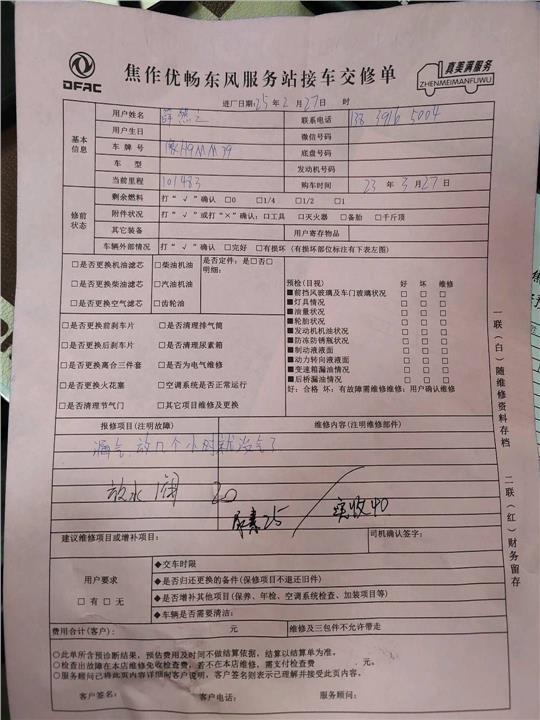 DFAC
焦作优畅东风服务站接车交修单
真美满服务
ZHENMEIMANFUWU
进厂日期:25年2月27日 时
基本信息
用户姓名 薛 联系电话 138 3916 5004
用户生日 微信号码
车牌号 豫H9MM79 底盘号码
车型 发动机号码
当前里程 101483 购车时间 23年3月27日
修前状态
剩余燃料 打“√”确认 □0 □1/4 □1/2 □1
附件状况 打“√”或打“×”确认:□工具 □灭火器 □备胎 □千斤顶
其它装备 用户寄存物品
车辆外部情况 打“√”确认 □完好 □有损坏 (有损坏部位标注有下表左图)
□是否更换机油滤芯 □柴油机油 是否定件:是□否□
□是否更换柴油滤芯 □汽油机油 明细:
□是否更换空气滤芯 □齿轮油
□是否更换前刹车片 □是否清理排气筒
□是否更换后刹车片 □是否清理尿素箱
□是否更换离合三件套 □是否为电气维修
□是否更换火花塞 □空调系统是否正常运行
□是否清理节气门 □其它项目维修及更换
预检(目视) 好 坏 维修
■前挡风玻璃及车门玻璃状况 □ □ □
■灯具情况 □ □ □
■油量状况 □ □ □
■轮胎状况 □ □ □
■发动机机油状况 □ □ □
■防冻防锈瓶状况 □ □ □
■制动液液面 □ □ □
■动力转向液液面 □ □ □
■变速箱漏油情况 □ □ □
■后桥漏油情况 □ □ □
好:合格 坏:有故障需维修维修:用户确认维修
报修项目(注明故障) 维修内容(注明维修部件)
漏气,放几个小时就没气了
放水阀 20
尿素25 实收40
建议维修项目或增补项目: 司机确认签字:
用户要求
□有□无
◆交车时限
◆是否归还更换的备件(保修项目不退还旧件)
◆是否增补其他项目(保养、年检、空调系统检查、加装项目等)
◆车辆是否需要清洁:
费用合计(客户): 元 维修及三包件不允许带走
○此单所含预诊断结果,预估费用及时间不做结算依据,结算以结算单为准。
○检查出故障在本店维修免收检查费,若不在本店维修,需支付检查费 元。
○服务顾问已将此页内容详细向客户说明,客户签名则表示已理解并接受此页内容。
客户签名: 客户电话: 服务顾问:
一联(白)随维修资料存档
二联(红)财务留存